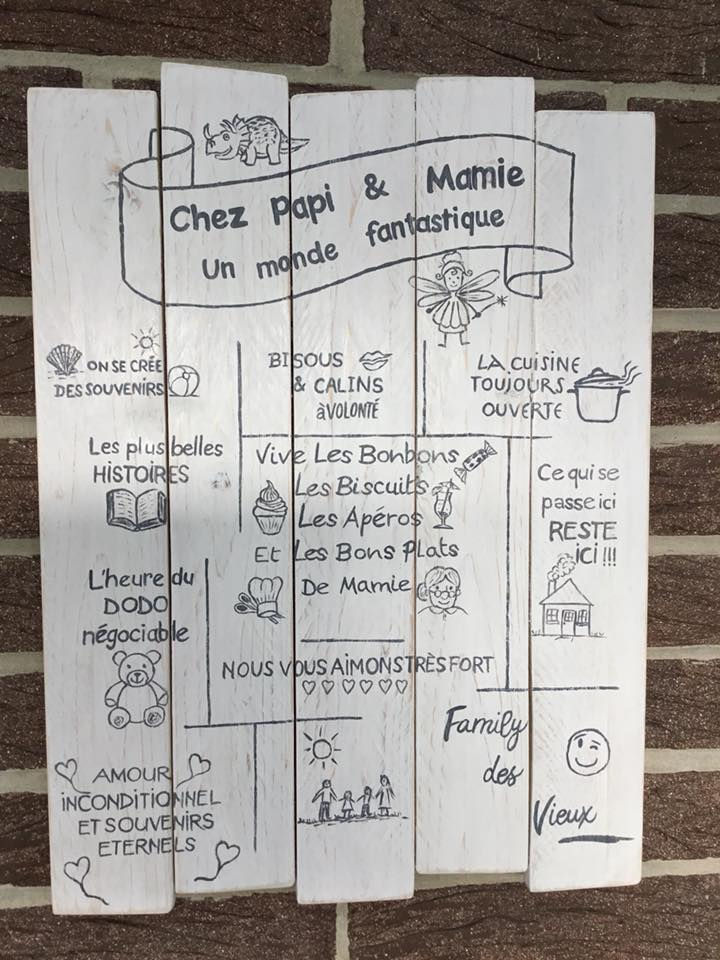 Chez Papi & Mamie
Un monde fantastique
ON SE CRÉE
DES SOUVENIRS
BISOUS
& CALINS
à VOLONTÉ
LA CUISINE
TOUJOURS
OUVERTE
Les plus belles
HISTOIRES
Vive Les Bonbons
Les Biscuits
Les Apéros
Et Les Bons Plats
De Mamie
Ce qui se
passe ici
RESTE
ici !!!
L'heure du
DODO
négociable
NOUS VOUS AIMONS TRÈS FORT
AMOUR
INCONDITIONNEL
ET SOUVENIRS
ETERNELS
Family
des
Vieux